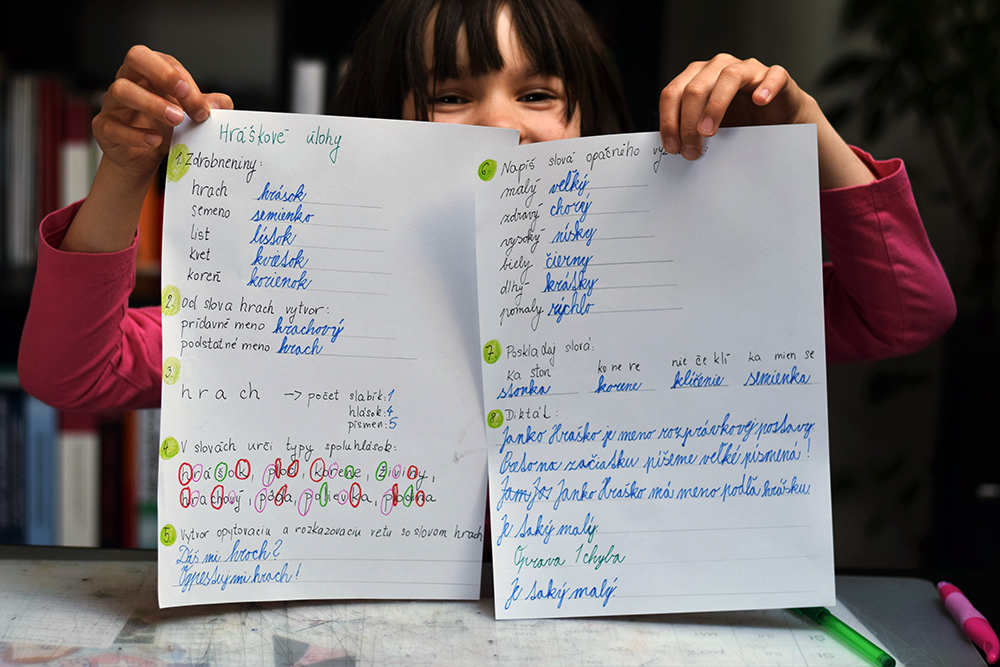 Hráškové úlohy
1. Zdrobneniny:
hrach hrášok
semeno semienko
list lístok
kvet kvietok
koreň korienok
2. Od slova hrach vytvor:
prídavné meno hrachový
podstatné meno hrach
3.
hrach → počet slabík: 1
hlások: 4
písmen: 5
4. V slovách urči typy spoluhlások:
hrášok, plod, korene, živiny,
hrachový, pôda, polievka, plodina
5. Vytvor opytovaciu a rozkazovaciu vetu so slovom hrach
Dáš mi hroch?
mi hrach!
6. Napíš slová opačného
malý veľký
zdravý chorý
vysoký nísky
biely čierny
dlhý krátky
pomaly rýchlo
7. Poskladaj slová:
ka ston ko ne re nie če klí ka mien se
stonka korene klíčenie semienka
8. Diktát:
Janko Hraško je meno rozprávkovej postavy.
Preto na začiatku píšeme veľké písmená!
Janko Hraško má meno podľa hrášku.
Je taký malý
Oprava 1 chyba
Je taký malý